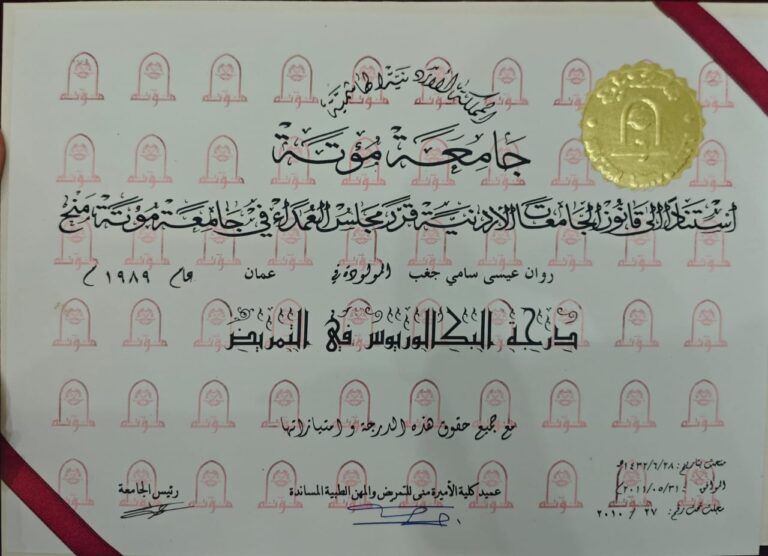 المملكة الأردنية الهاشمية
جامعة مؤتة
استناداً الى قانون الجامعات الاردنية قرر مجلس العمداء في جامعة مؤتة، منح
روان عيسى سامي جغب المولودة في عمان عام ١٩٨٩ م
درجة البكالوريوس في التمريض
مع جميع حقوق هذه الدرجة و امتيازاتها
منحت بتاريخ: ١٤٣٢/٦/٢٨ هـ
الموافق : ٢٠١١/٠٥/٣١ م
سجلت تحت رقم: ٢٧ / ٢٠١٠
عميد كلية الأميرة منى للتمريض والمهن الطبية المساندة
رئيس الجامعة
مؤتة